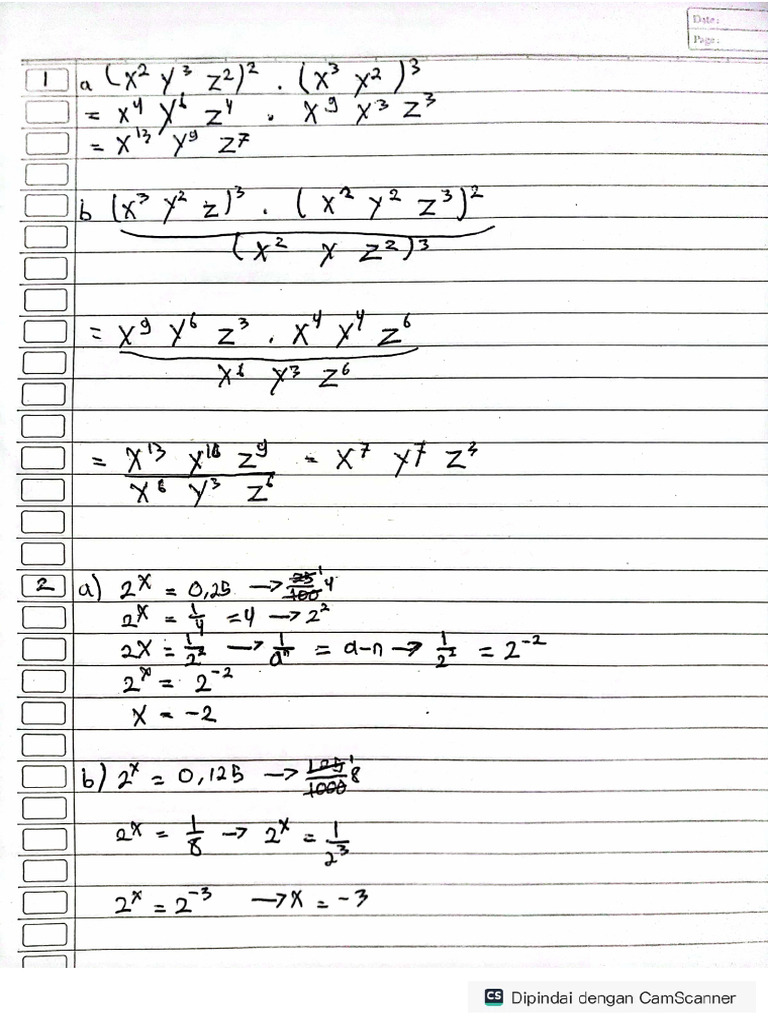 Date:
Page:
1 a (x² y³ z²)² . (x³ x²)³
= x⁴ y⁶ z⁴ . x⁹ x³ z³
= x¹³ y⁹ z⁷
b (x³ y² z)³ . (x² y² z³)²
(x² x z²)³
= x⁹ y⁶ z³ . x⁴ y⁴ z⁶
x⁶ y³ z⁶
= x¹³ y¹⁰ z⁹ = x⁷ y⁷ z³
x⁶ y³ z⁶
2 a) 2ˣ = 0,25 → 25/100 1/4
2ˣ = 1/4 = 4 → 2²
2x = 1/2² → 1/aⁿ = a-n → 1/2² = 2⁻²
2ˣ = 2⁻²
x = -2
b) 2ˣ = 0,125 → 125/1000 1/8
2ˣ = 1/8 → 2ˣ = 1/2³
2ˣ = 2⁻³ → x = -3
CS Dipindai dengan CamScanner